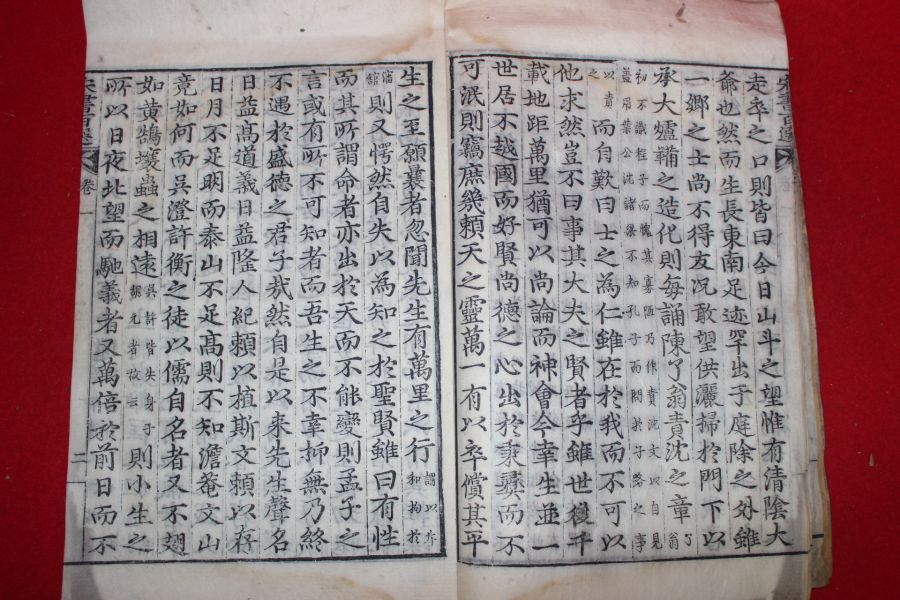 宋書百選
走卒之口則皆曰今日山斗之望惟有清陰大
爺也然而生長東南足迹罕出于庭除之外雖
一鄉之士尚不得友况敢望供灑掃於門下以
承大爐鞴之造化則每誦陳了翁責沈之章了翁
初不識程子而愧其寡陋乃作責沈文以自見
蓋居葉公沈諸梁不知孔子而問於子路之事
以責之而自歎曰士之為仁雖在於我而不可以
他求然豈不曰事其大夫之賢者乎雖世後千
載地距萬里猶可以尚論而神會今幸生並一
世居不越國而好賢尚德之心出於秉彝而不
可泯則竊庶幾賴天之靈萬一有以卒償其平
生之至願曩者忽聞先生有萬里之行謂以斥和拘於
瀋館則又愕然自失以為知之於聖賢雖曰有性
而其所謂命者亦出於天而不能變則孟子之
言或有所不可知者而吾生之不幸抑無乃終
不遇於盛德之君子哉然自是以來先生聲名
日益高道義日益隆人紀賴以植斯文賴以存
日月不足明而泰山不足高則不知澹菴文山
竟如何而吳澄許衡之徒以儒自名者又不翅
如黃鵠壤蟲之相遠吳許皆失身于胡元者故云則小生之
所以日夜北望而馳義者又萬倍於前日而不
宋書百選 卷一 二